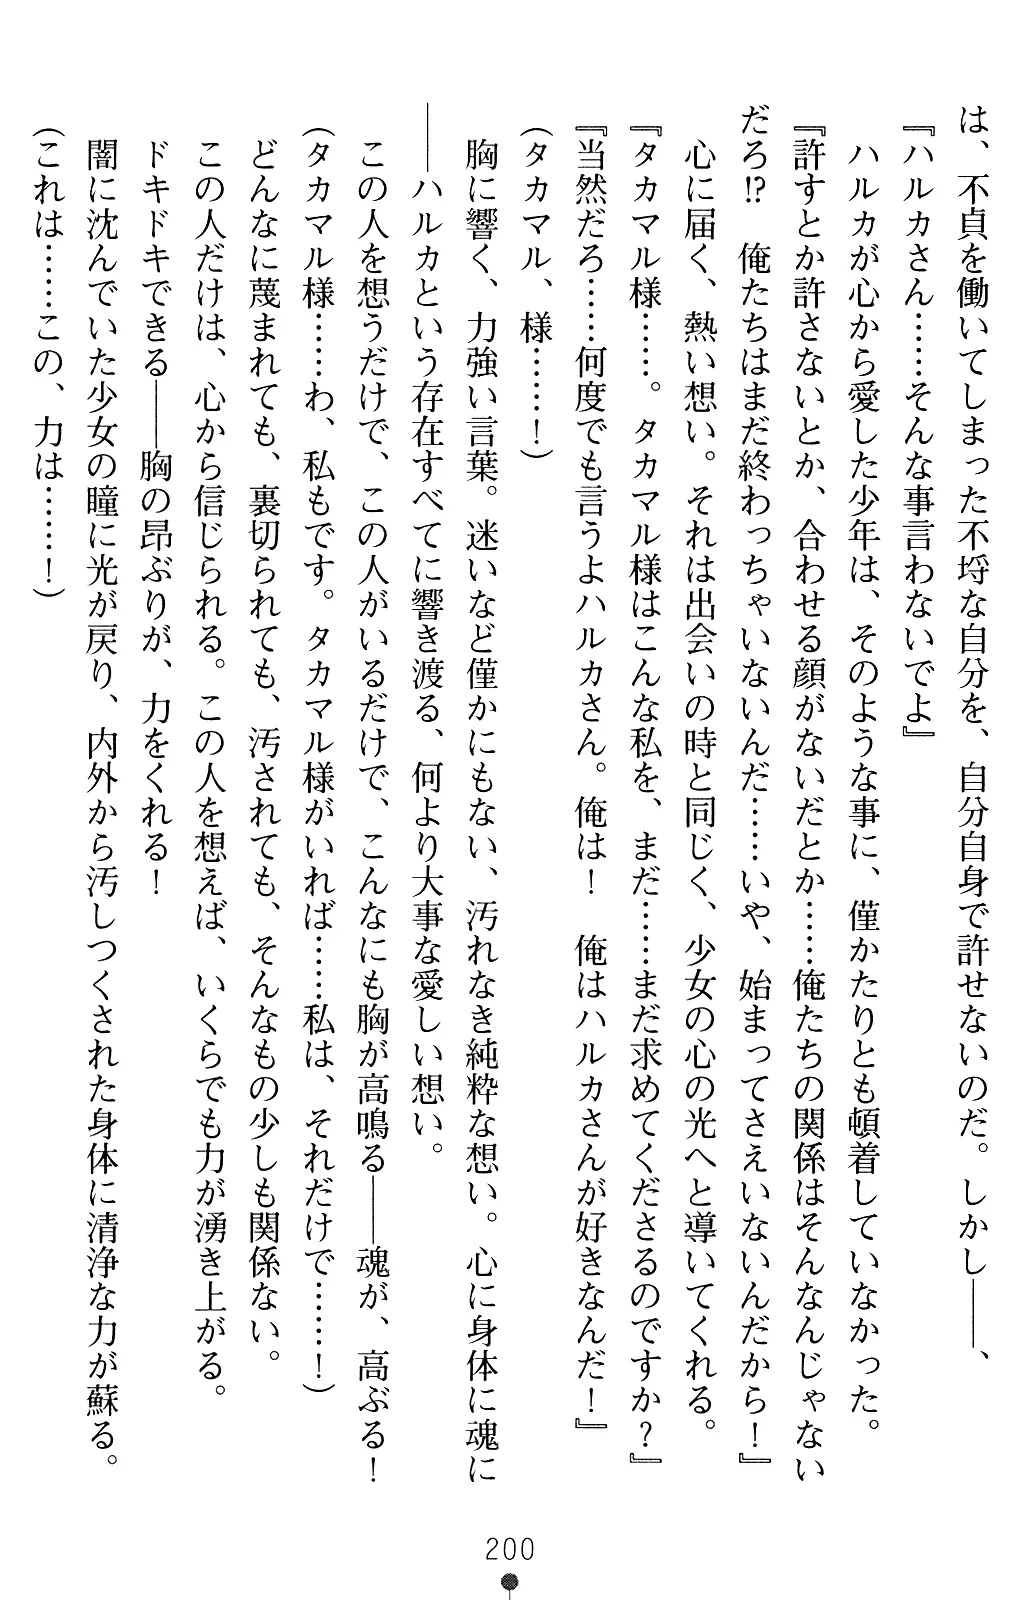 は、不貞を働いてしまった不埒な自分を、自分自身で許せないのだ。しかし――、
『ハルカさん……そんな事言わないでよ』
　ハルカが心から愛した少年は、そのような事に、僅かたりとも頓着していなかった。
『許すとか許さないとか、合わせる顔がないだとか……俺たちの関係はそんなんじゃない
だろ!?　俺たちはまだ終わっちゃいないんだ……いや、始まってさえいないんだから！』
　心に届く、熱い想い。それは出会いの時と同じく、少女の心の光へと導いてくれる。
『タカマル様……。タカマル様はこんな私を、まだ……まだ求めてくださるのですか？』
『当然だろ……何度でも言うよハルカさん。俺は！　俺はハルカさんが好きなんだ！』
（タカマル、様……！）
　胸に響く、力強い言葉。迷いなど僅かにもない、汚れなき純粋な想い。心に身体に魂に
――ハルカという存在すべてに響き渡る、何より大事な愛しい想い。
　この人を想うだけで、この人がいるだけで、こんなにも胸が高鳴る――魂が、高ぶる！
（タカマル様……わ、私もです。タカマル様がいれば……私は、それだけで……！）
　どんなに蔑まれても、裏切られても、汚されても、そんなもの少しも関係ない。
　この人だけは、心から信じられる。この人を想えば、いくらでも力が湧き上がる。
　ドキドキできる――胸の昂ぶりが、力をくれる！
　闇に沈んでいた少女の瞳に光が戻り、内外から汚しつくされた身体に清浄な力が蘇る。
（これは……この、力は……！）
200